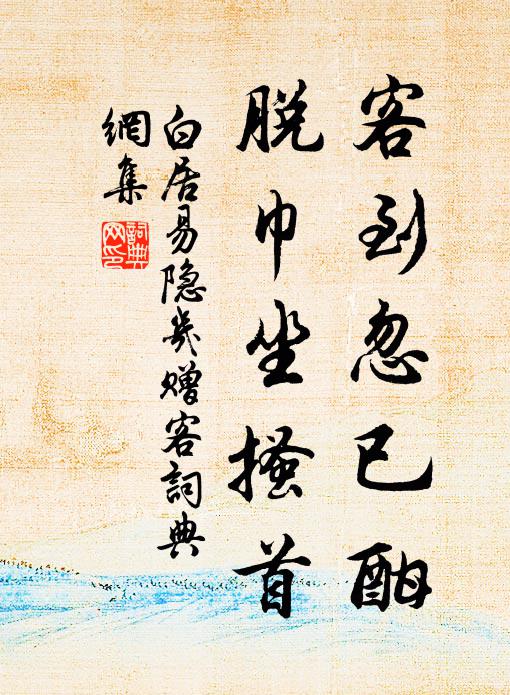 客到忽已酣
脱巾坐搔首
白居易隐几赠客词典
網集
詞典
网印